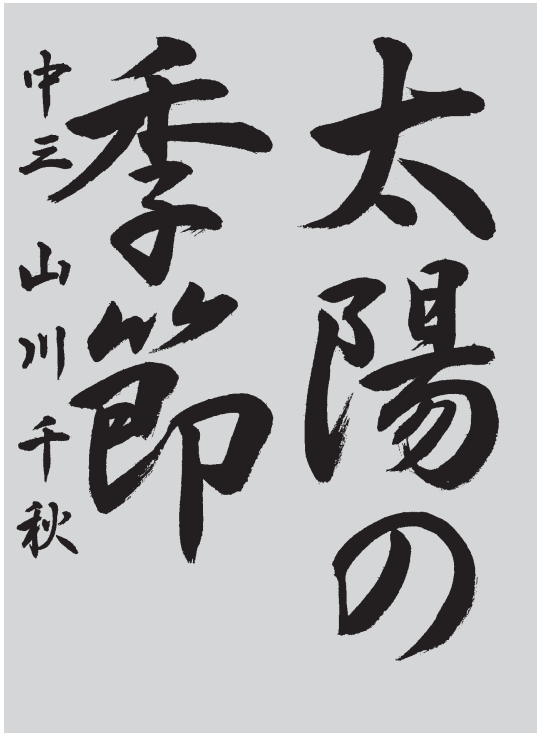 太陽の
季節
中三 山川千秋